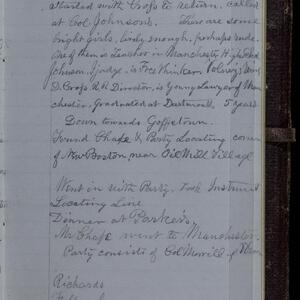 started with Crofs to return. called
at Col Johnson's. There are some
bright girls, lively enough, perhaps rude.
One of them is Teacher in Manchester High School
Johnson, I judge, is Free Thinker,
D. Crofs R.R. Director, is Young Lawyer of Man
chester, Graduated at Dartmouth 5 years
Down towards Goffstown.
Found Chafe & Party Locating corner
of New Boston near Oil Mill Village
Went in with Party. Took Instrument
Locating Line
Dinner at Parkers,
Mr Chafe went to Manchester.
Party consists of Col Morrill of
Richards